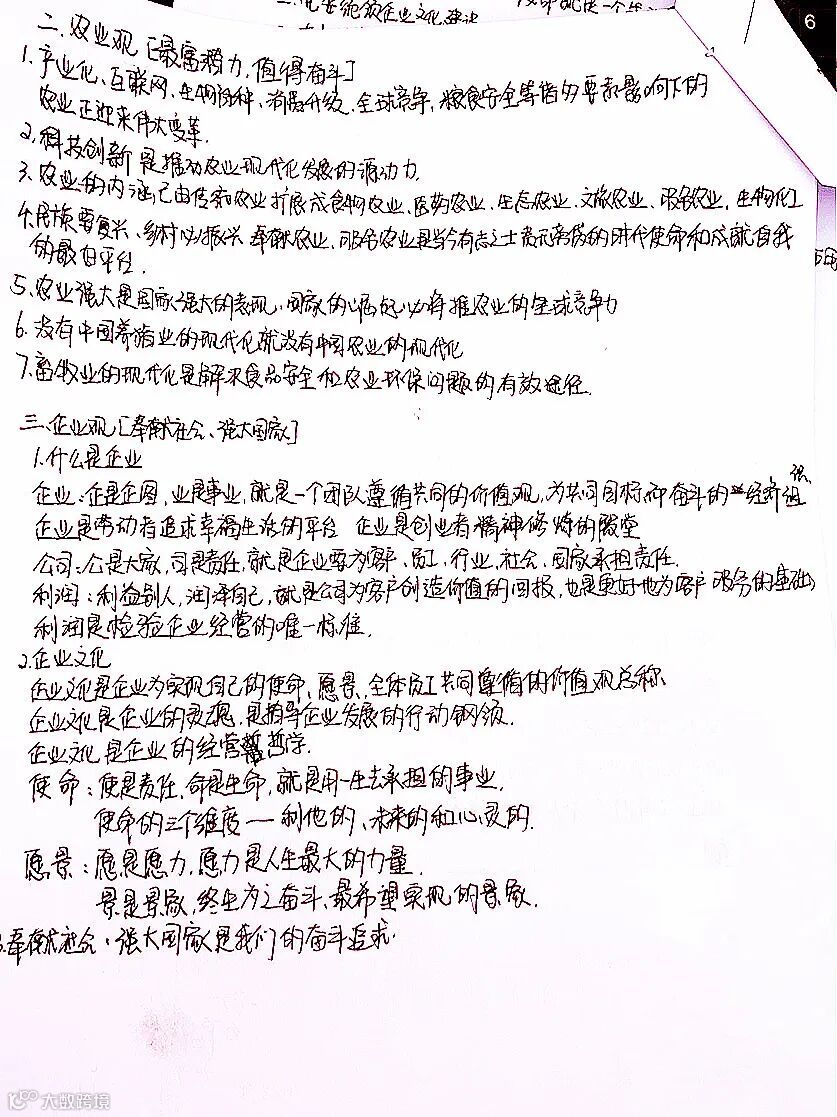 6
二.农业观［最富潜力,值得奋斗］
1.产业化、互联网、生物育种、消费升级、全球竞争、粮食安全等诸多要素影响下的
农业正迎来伟大变革.
2.科技创新是推动农业现代化发展的源动力.
3.农业的内涵已由传统农业扩展成食物农业、医药农业、生态农业、文旅农业、服务农业、生物化工
4.民族要复兴、乡村必振兴 奉献农业,服务农业是当今有志之士责无旁贷的时代使命和成就自我
的最自平台.
5.农业强大是国家强大的表现,国家的崛起必将推农业的全球竞争力
6.没有中国养猪业的现代化就没有中国农业的现代化
7.畜牧业的现代化是解决食品安全和农业环保问题的有效途径.
三.企业观［奉献社会、强大国家］
1.什么是企业
企业:企是企图,业是事业,就是一个团队遵循共同的价值观,为共同目标而奋斗的经济组织
企业是劳动者追求幸福生活的平台 企业是创业者精神修炼的殿堂
公司:公是大家,司是责任,就是企业要为客户、员工、行业、社会、国家承担责任.
利润:利益别人,润泽自己,就是公司为客户创造价值的回报,也是更好地为客户服务的基础;
利润是检验企业经营的唯一标准.
2.企业文化
企业文化是企业为实现自己的使命、愿景、全体员工共同遵循的价值观总称
企业文化是企业的灵魂,是指导企业发展的行动钢领.
企业文化是企业的经营哲学.
使命:使是责任,命是生命,就是用一生去承担的事业.
使命的三个维度——利他的、未来的和心灵的.
愿景:愿是愿力,愿力是人生最大的力量.
景是景象,终生为之奋斗、最希望实现的景象.
3.奉献社会,强大国家是我们的奋斗追求.
大数跨境